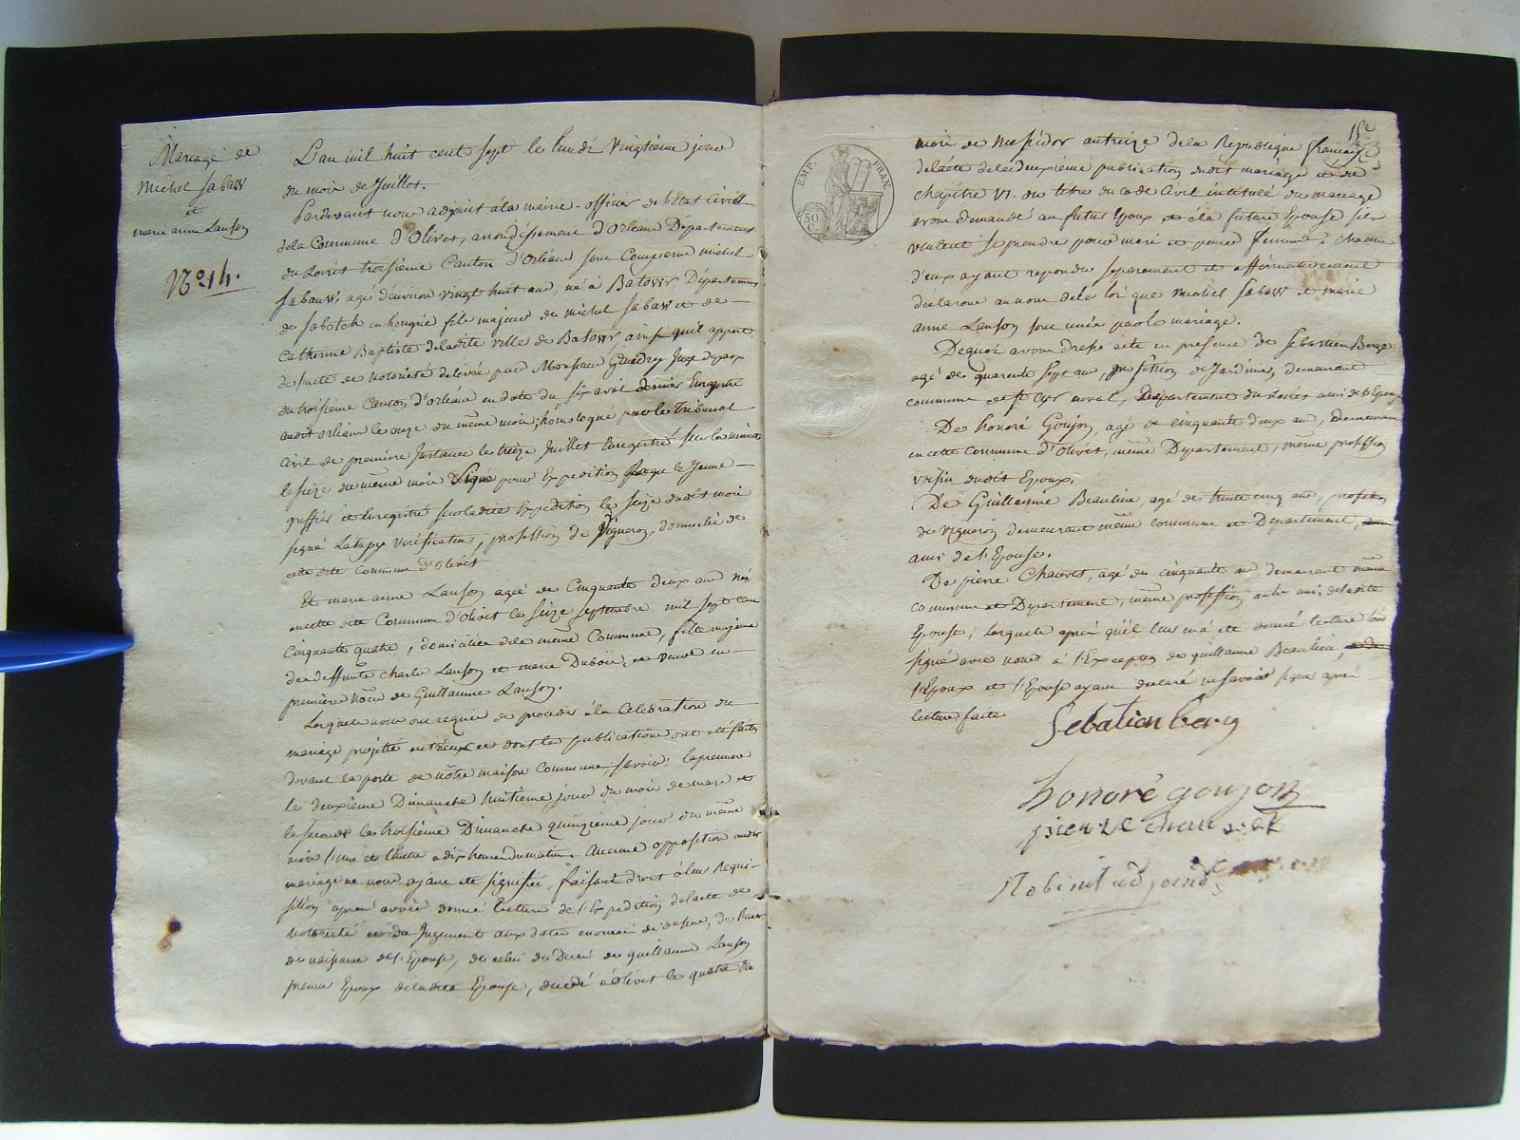 Mariage de
Michel Sabaw
et
marie anne Lanson
N.º 14.
L'an mil huit cent sept le lundi vingtième jour
du mois de Juillet.
Pardevant nous adjoint à la mairie officier de l'état civil
de la Commune d'Olivet, arrondissement d'Orléans Département
du Loiret troisième Canton d'Orléans sont Comparus michel
Sabaw, agé d'environ vingt huit ans, né à Batowr Département
de Sabotch en hongrie fils majeur de michel Sabaw et de
Catherine Baptiste de la dite ville de Batowr, ainsi qu'il appert
de l'acte de notoriété délivré par Monsieur Juge de paix
du troisième Canton d'orléans en date du six avril dernier Enregistré
audit orléans le onze du même mois, homologué par le Tribunal
Civil de première Instance le treize Juillet Enregistré sur la minute
le seize du même mois Signé pour Expédition le Jeune
greffier et Enregistré sur la dite Expédition le seize dudit mois
signé Latapy Vérificateur, profession de Vigneron, domicilié de
cette dite Commune d'olivet
Et marie anne Lanson agée de Cinquante deux ans née
en cette dite Commune d'olivet le seize septembre mil sept cent
Cinquante quatre, domiciliée de la même Commune, fille majeure
de deffunts charle Lanson et marie Dubois, et veuve en
première Nôce de Guillaume Lanson.
Lesquels nous ont requis de procéder à la Célébration du
mariage projetté entr'eux et dont les publications ont été faites
devant la porte de nôtre maison Commune savoir; la première
le deuxième Dimanche huitième jour du mois de mars et
la seconde le troisième Dimanche quinzième jour du même
mois l'une et l'autre à dix heures du matin. Aucune opposition audit
mariage ne nous ayant été signifiée, faisant droit à leur Requi-
sition après avoir donné lecture de l'Expédition de l'acte de
Notoriété et du Jugement aux dates
de naissance de l'Epouse, de celui du Décès de guillaume Lanson
premier Epoux de la dite Epouse, décédé à olivet le quatre du
15e
EMP. FRAN.
50
C.
mois de Messidor an treize de la République française
de l'acte de la deuxième publication dudit mariage et du
chapitre VI. du titre du Code Civil intitulé du mariage
avons demandé au futur Epoux et à la future Epouse s'ils
veulent se prendre pour mari et pour femme; chacun
d'eux ayant répondu séparément et affirmativement
déclarons au nom de la loi que michel Sabaw et marie
anne Lanson sont unis par le mariage.
De quoi avons dressé acte en présence de Sebastien Berg
agé de quarente sept ans, profession de Jardinier, demeurant
commune de St Cyr en val, Département du Loiret ami de l'Epoux
De honoré Goujon, agé de cinquante deux ans, demeurant
en cette Commune d'Olivet, même Département, même profession
voisin dudit Epoux.
De Guillaume Beaulieu, agé de trente cinq ans, profession
de vigneron demeurant même Commune et Département,
ami de l'Epouse.
De pierre Chauvet, agé de cinquante ans demeurant même
Commune et Département, même profession autre ami de la dite
Epouse; lesquels après qu'il leur en a été donné lecture ont
signé avec nous à l'Exception de guillaume Beaulieu,
l'Epoux et l'Epouse ayant déclaré ne savoir signer après
lecture faite
Sebatien berg
honoré goujon
pierre chauvet
Robinet adjoint